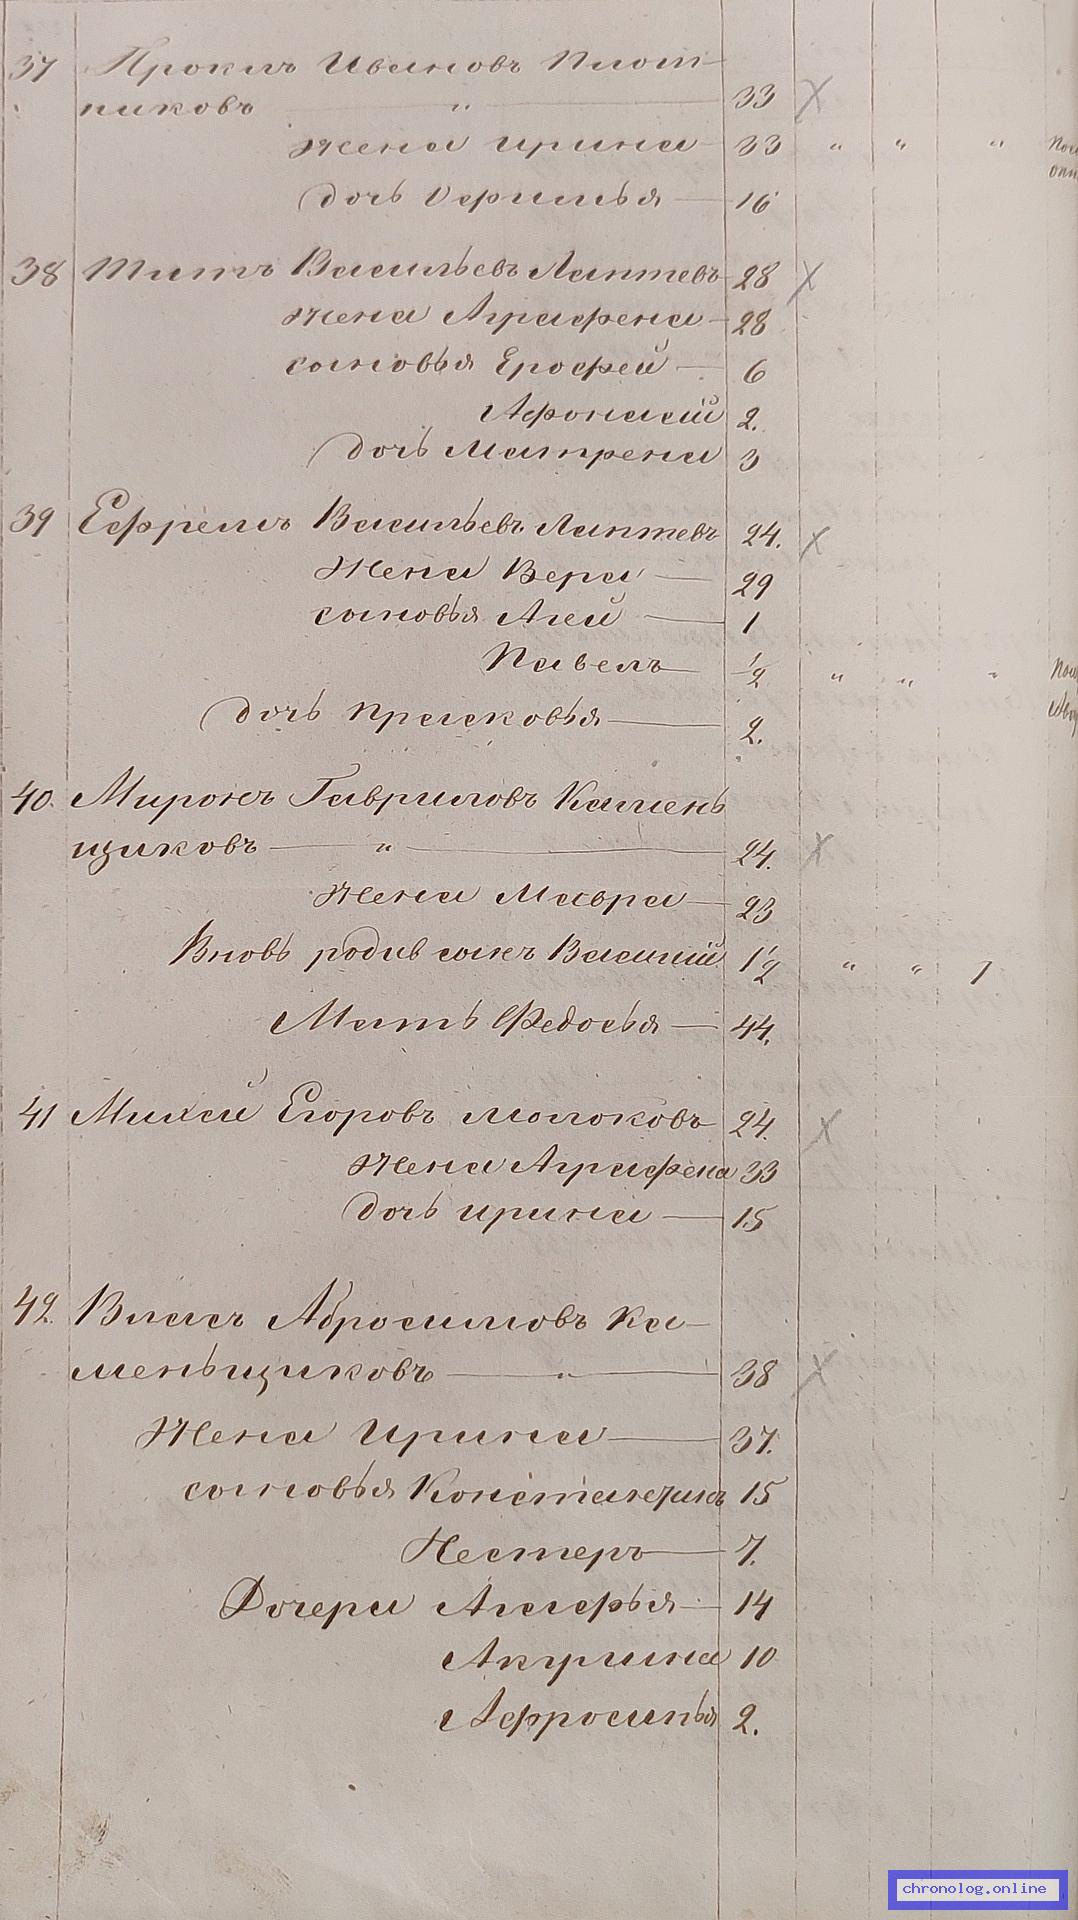 37 Проклъ Ивановъ Плот-
никовъ — „ — 33 X
жена Ирина 33 „ „ „
дочь 16
38 Титъ Васильевъ Лаптевъ 28 X
жена Аграфена — 28
сыновья Ерофей — 6
Афонасий 2.
дочь Матрена 3
39 Ефремъ Васильевъ Лаптевъ 24. X
жена Вера — 29
сыновья Агей — 1
Павелъ — 1/2 „ „ „
дочь Прасковья — 2.
40. Миронъ Гавриловъ Камень
щиковъ — „ — 24. X
жена Мавра — 23
Вновь родив сынъ Василий 1/2 „ „ 1
Мать Федосья — 44.
41 Михей Егоровъ Молоковъ 24. X
жена Аграфена 33
дочь Ирина — 15
42. Власъ Абросимовъ Ка-
меньщиковъ — „ — 38 X
жена Ирина — 37.
сыновья Константинъ 15
Нестеръ — 7.
Дочери Агафья — 14
Акулина 10
Афросинья 2.
chronolog.online